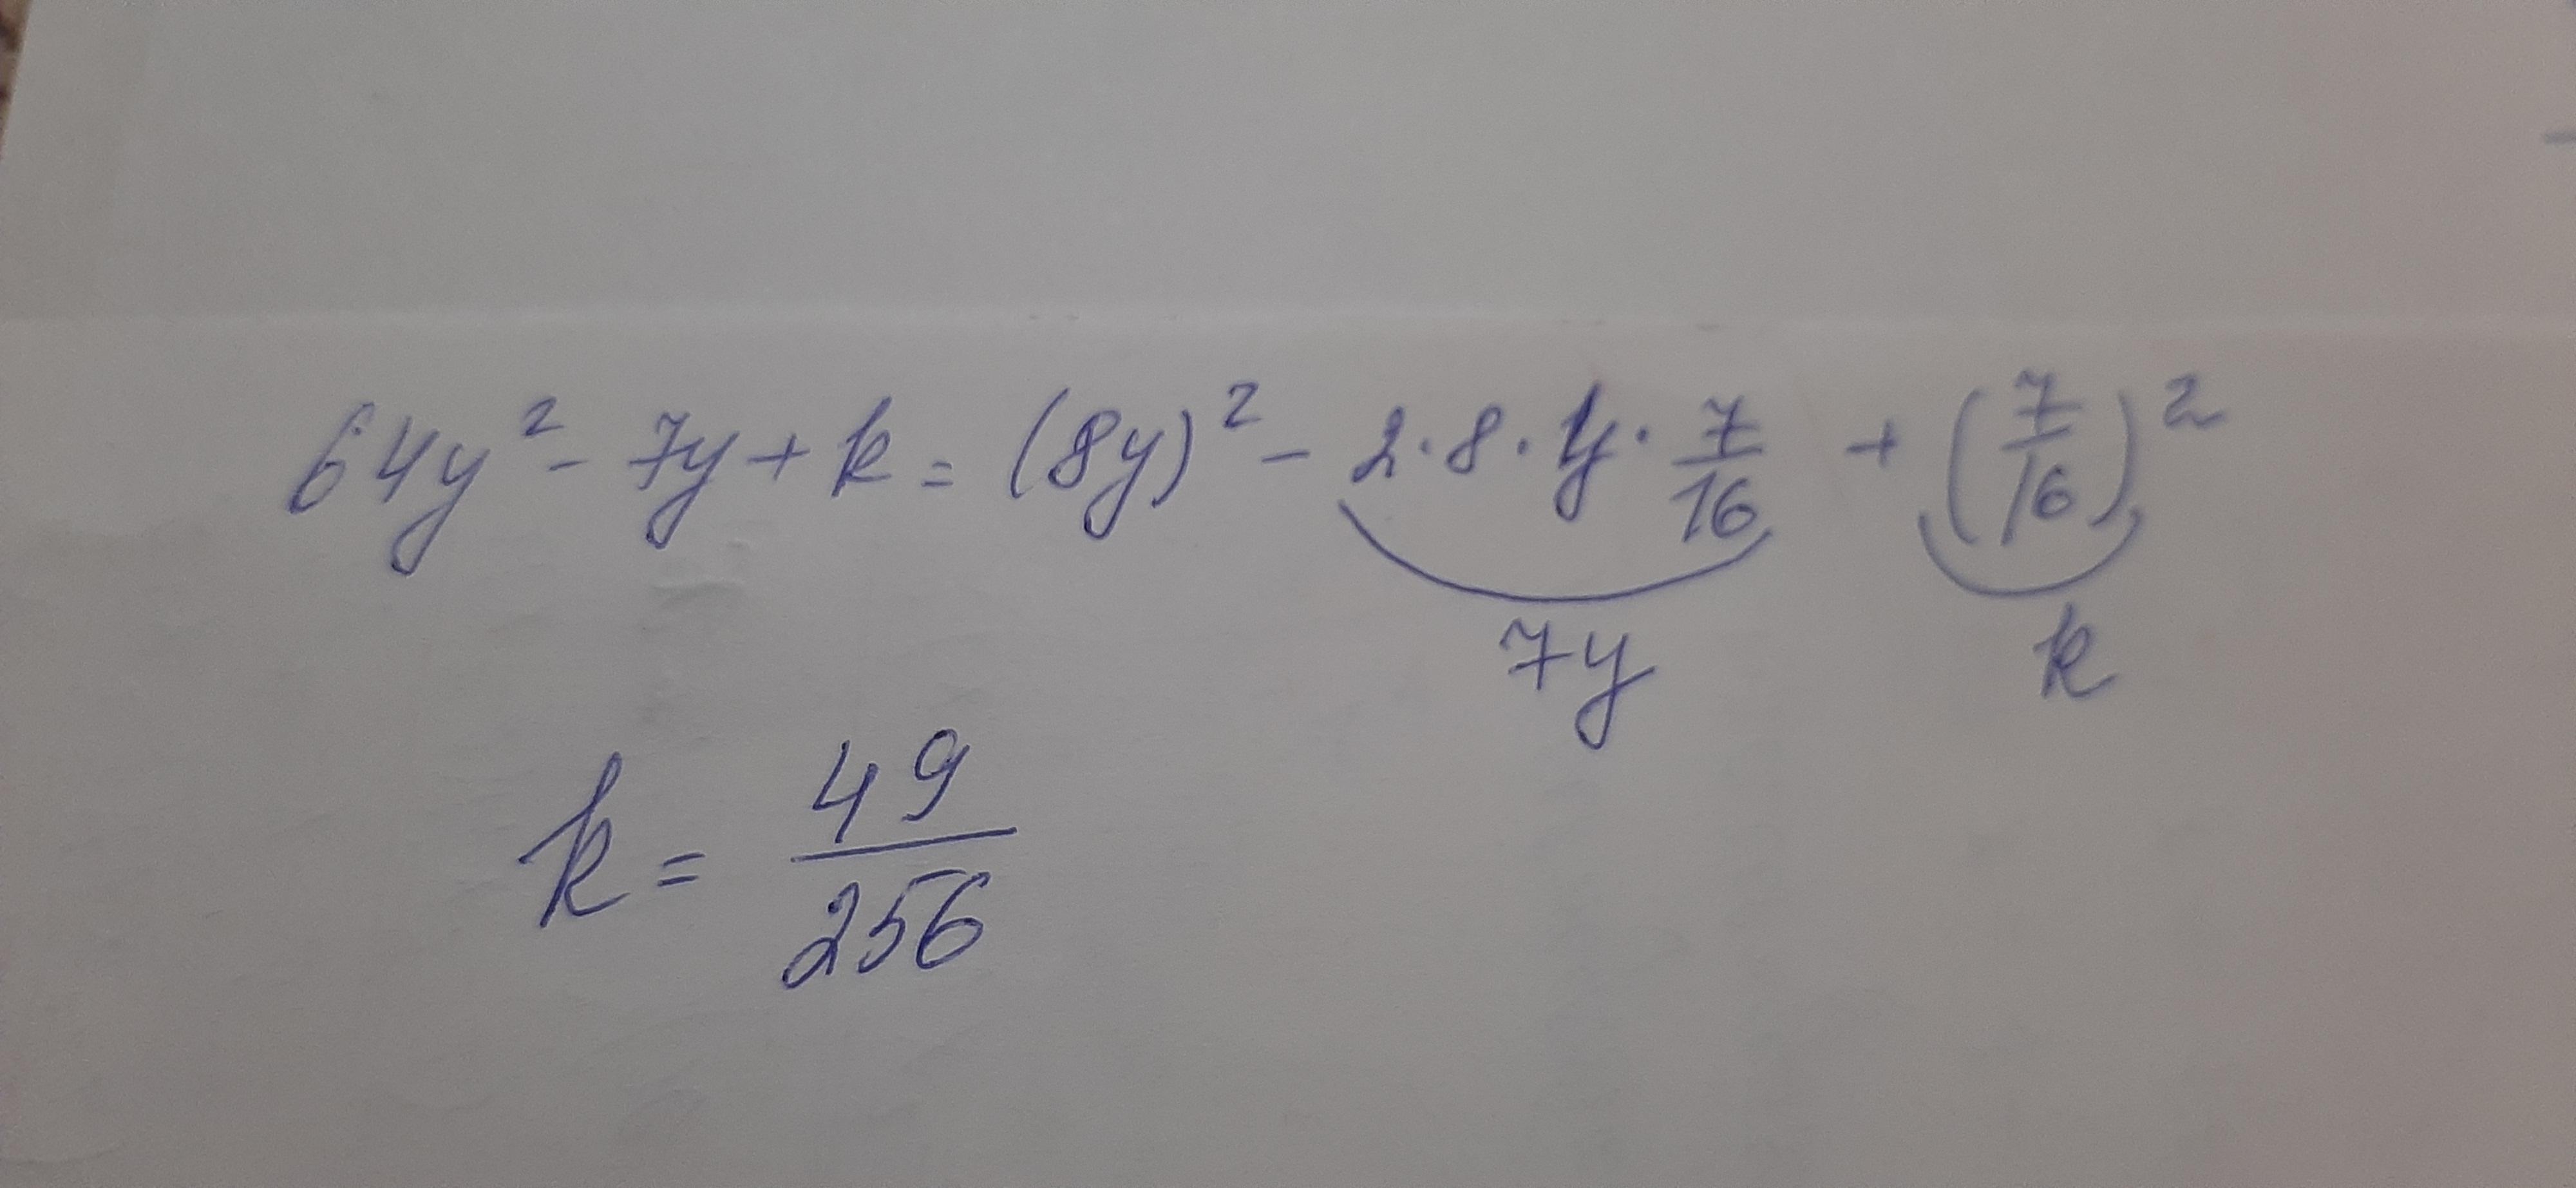 64y² - 7y + k = (8y)² - 2·8·y·7/16 + (7/16)²
7y k
k = 49/256